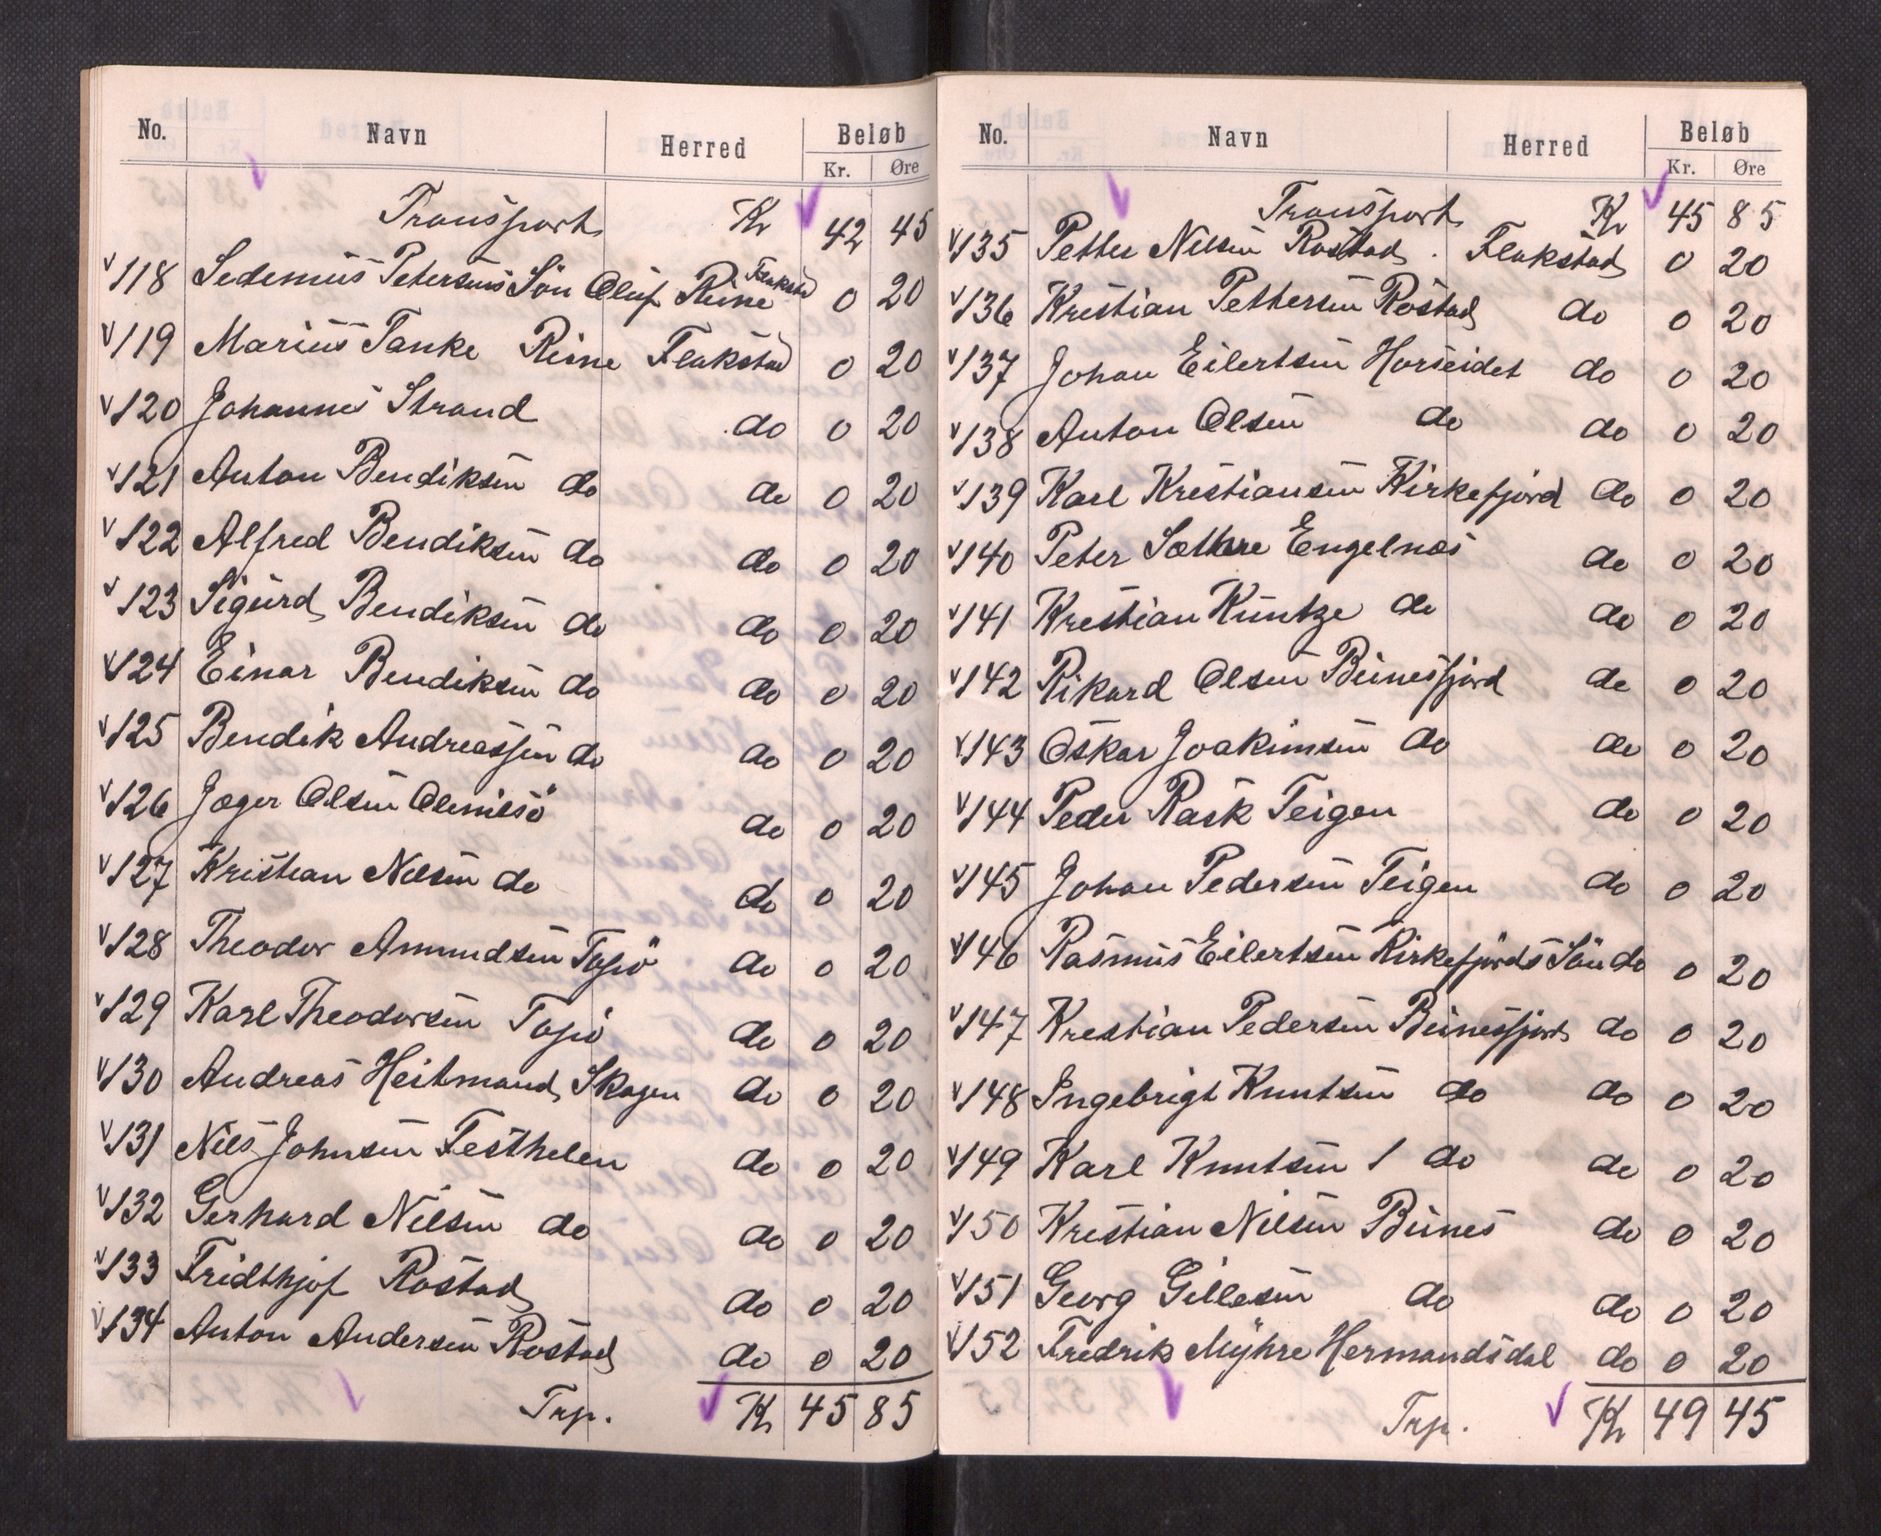 No. Navn Herred Beløb
Kr. Øre
Transport Kr 42 45
118 Sedenius Petersens Sön Oluf Reine Flakstad 0 20
119 Marius Tanke Reine Flakstad 0 20
120 Johannes Strand do 0 20
121 Anton Bendiksen do do 0 20
122 Alfred Bendiksen do do 0 20
123 Sigurd Bendiksen do do 0 20
124 Einar Bendiksen do do 0 20
125 Bendik Andreassen do do 0 20
126 Jæger Olsen Olenilsö do 0 20
127 Kristian Nilsen do do 0 20
128 Theodor Amundsen Topö do 0 20
129 Karl Theodorsen Topö do 0 20
130 Andreas Heitmand Skagen do 0 20
131 Nils Johnsen Festhelen do 0 20
132 Gerhard Nilsen do do 0 20
133 Fridthjof Rostad do 0 20
134 Anton Andersen Rostad do 0 20
Trp. Kr 45 85
No. Navn Herred Beløb
Kr. Øre
Transport Kr 45 85
135 Petter Nilsen Rostad. Flakstad 0 20
136 Kristian Pettersen Rostad do 0 20
137 Johan Eilertsen Horseidet do 0 20
138 Anton Olsen do do 0 20
139 Karl Kristiansen Kirkefjord do 0 20
140 Peter Sæthre Engelnæs do 0 20
141 Krestian Kuntze do do 0 20
142 Rikard Olsen Bunesfjord do 0 20
143 Oskar Joakimsen do do 0 20
144 Peder Rask Teigen do 0 20
145 Johan Pedersen Teigen do 0 20
146 Rasmus Eilertsen Kirkefjords Sön do 0 20
147 Krestian Pedersen Bunesfjord do 0 20
148 Ingebrigt Knutsen do do 0 20
149 Karl Knutsen 1 do do 0 20
150 Kristian Nilsen Bunes do 0 20
151 Georg Gillesen do do 0 20
152 Fredrik Myhre Hermandsdal do 0 20
Trp. Kr 49 45